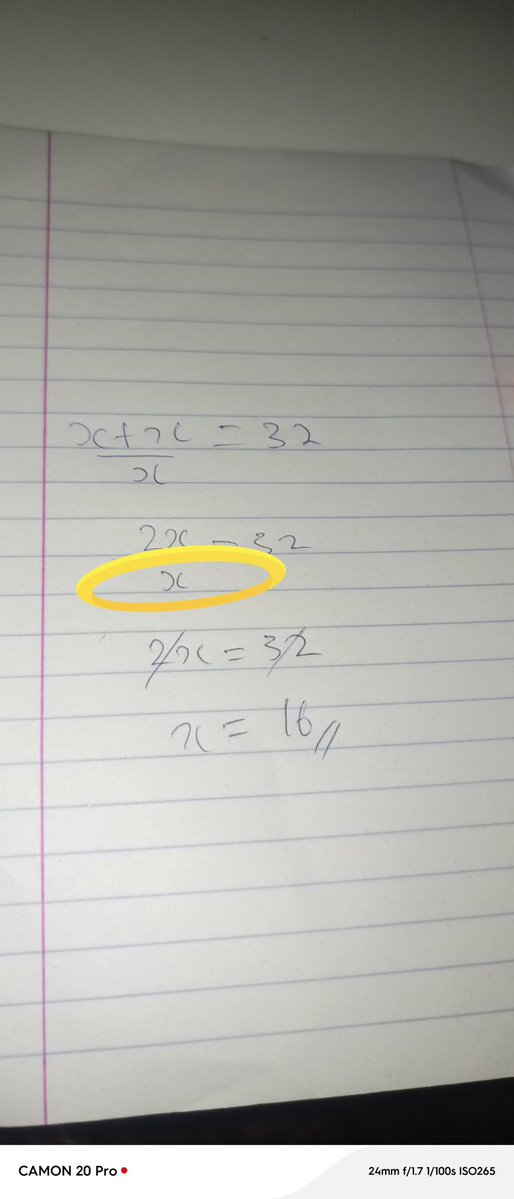 x+x = 32
x
2x = 32
x
2x = 32
x = 16//
CAMON 20 Pro
24mm f/1.7 1/100s ISO265